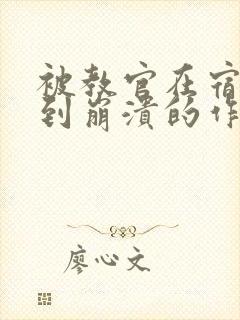 被教官在宿
到崩溃的作
廖心文